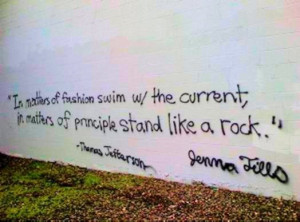 "In matters of fashion swim w/ the current,
in matters of principle stand like a rock."
-Thomas Jefferson
Jenna Fills